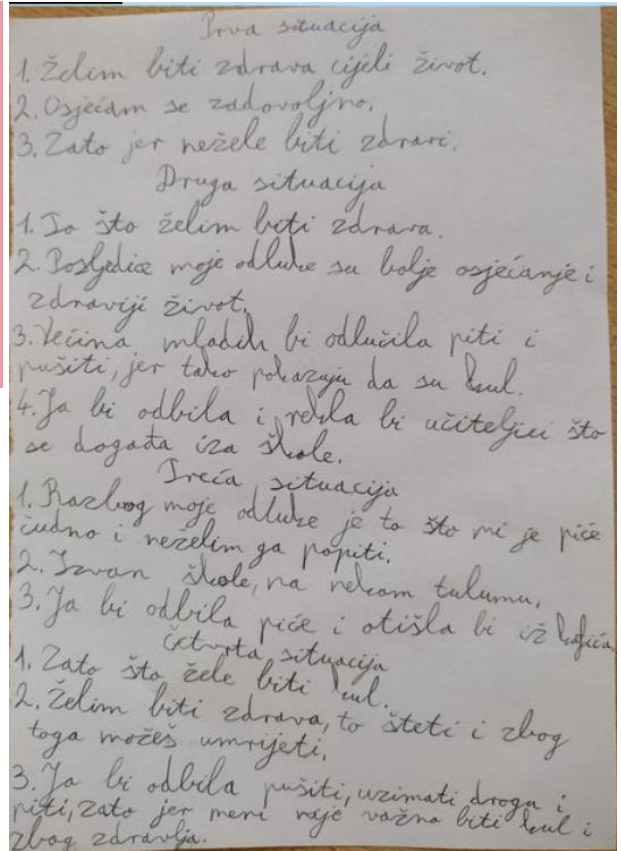 Prva situacija
1. Želim biti zdrava cijeli život.
2. Osjećam se zadovoljno.
3. Zato jer nežele biti zdravi.
Druga situacija
1. To što želim biti zdrava.
2. Posljedice moje odluke su bolje osjećanje i
zdraviji život.
3. Većina mladih bi odlučila piti i
pušiti, jer tako pokazuju da su kul.
4. Ja bi odbila i rekla bi učiteljici što
se događa iza škole.
Treća situacija
1. Razlog moje odluke je to što mi je piće
čudno i neželim ga popiti.
2. Izvan škole, na nekom tulumu.
3. Ja bi odbila piće i otišla bi iz kafića.
Četvrta situacija
1. Zato što žele biti kul.
2. Želim biti zdrava, to šteti i zbog
toga možeš umrijeti.
3. Ja bi odbila pušiti, uzimati droga i
piti, zato jer meni nije važno biti kul i
zbog zdravlja.